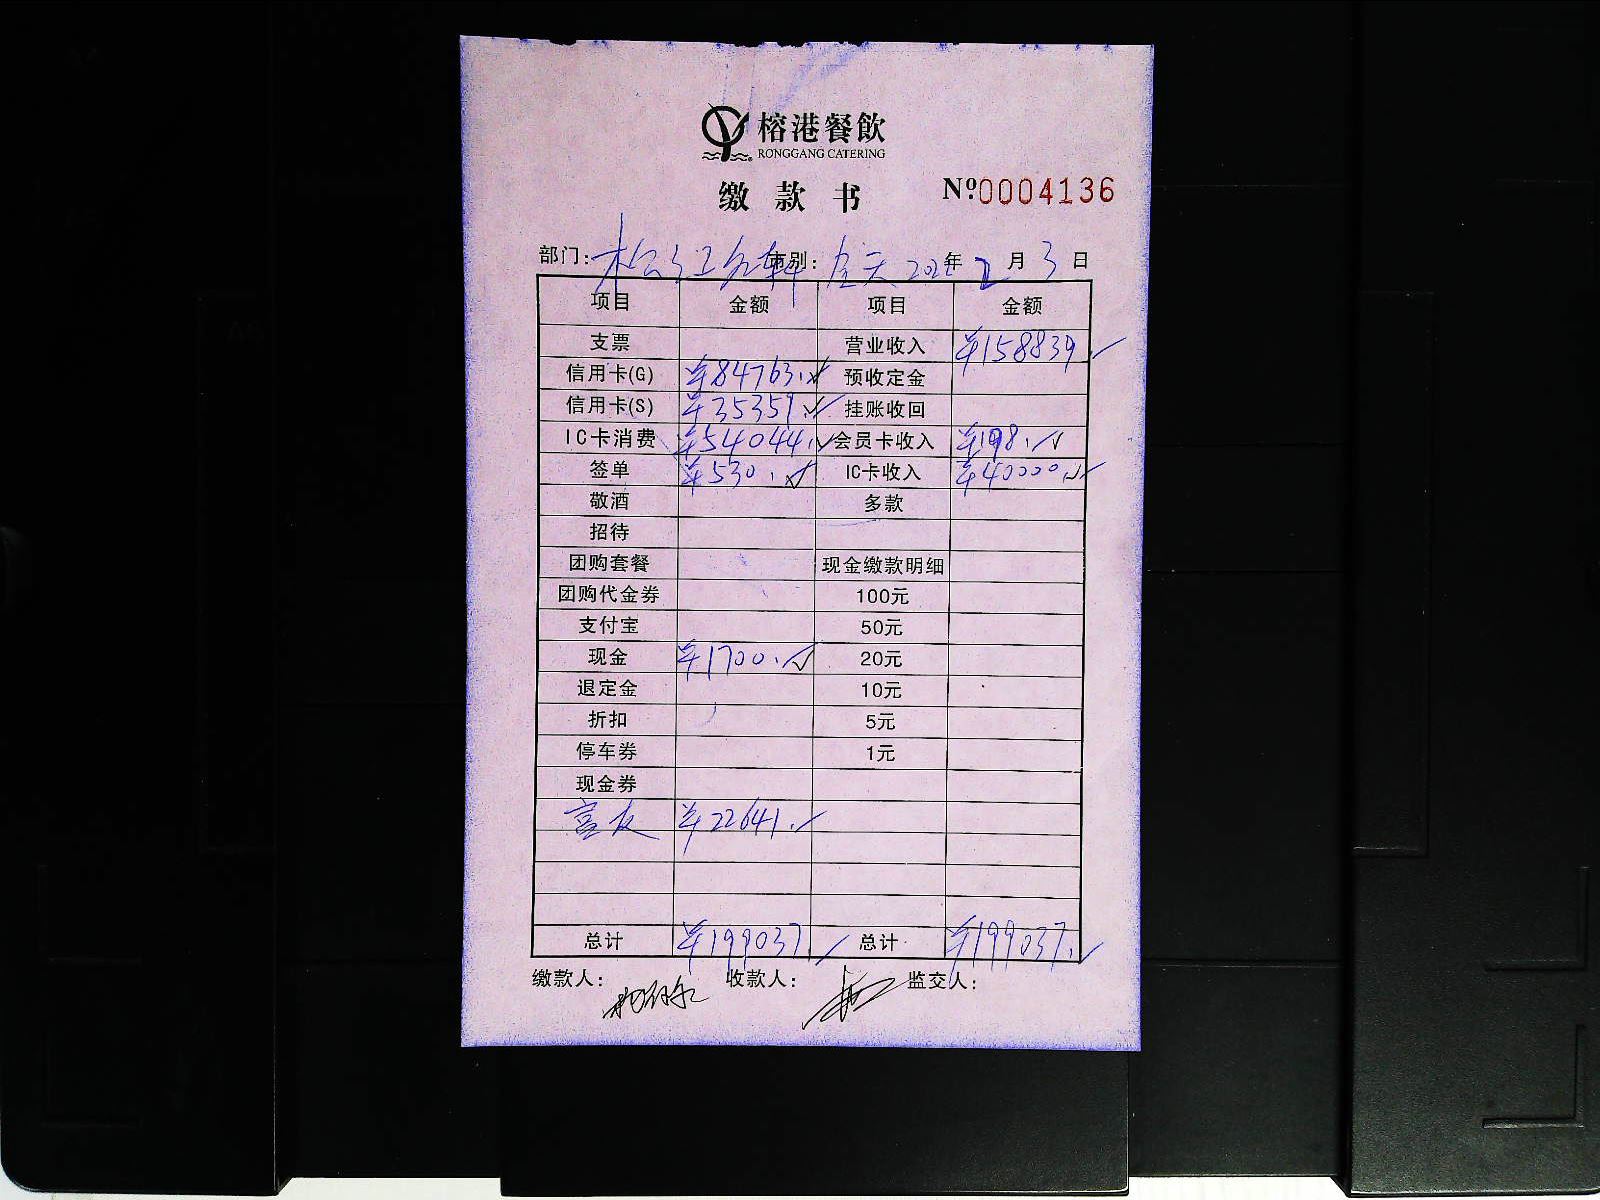 榕港餐飲
RONGGANG CATERING
缴款书 №0004136
部门: 松江名轩 市别: 全天 202 年 2 月 3 日
项目 金额 项目 金额
支票 营业收入 ¥158839
信用卡(G) ¥84763. 预收定金
信用卡(S) ¥35359 挂账收回
IC卡消费 ¥54044. 会员卡收入 ¥198.
签单 ¥530. IC卡收入 ¥40000
敬酒 多款
招待
团购套餐 现金缴款明细
团购代金券 100元
支付宝 50元
现金 ¥1700. 20元
退定金 10元
折扣 5元
停车券 1元
现金券
¥22641.
总计 ¥199037 总计 ¥199037.
缴款人: 收款人: 监交人: